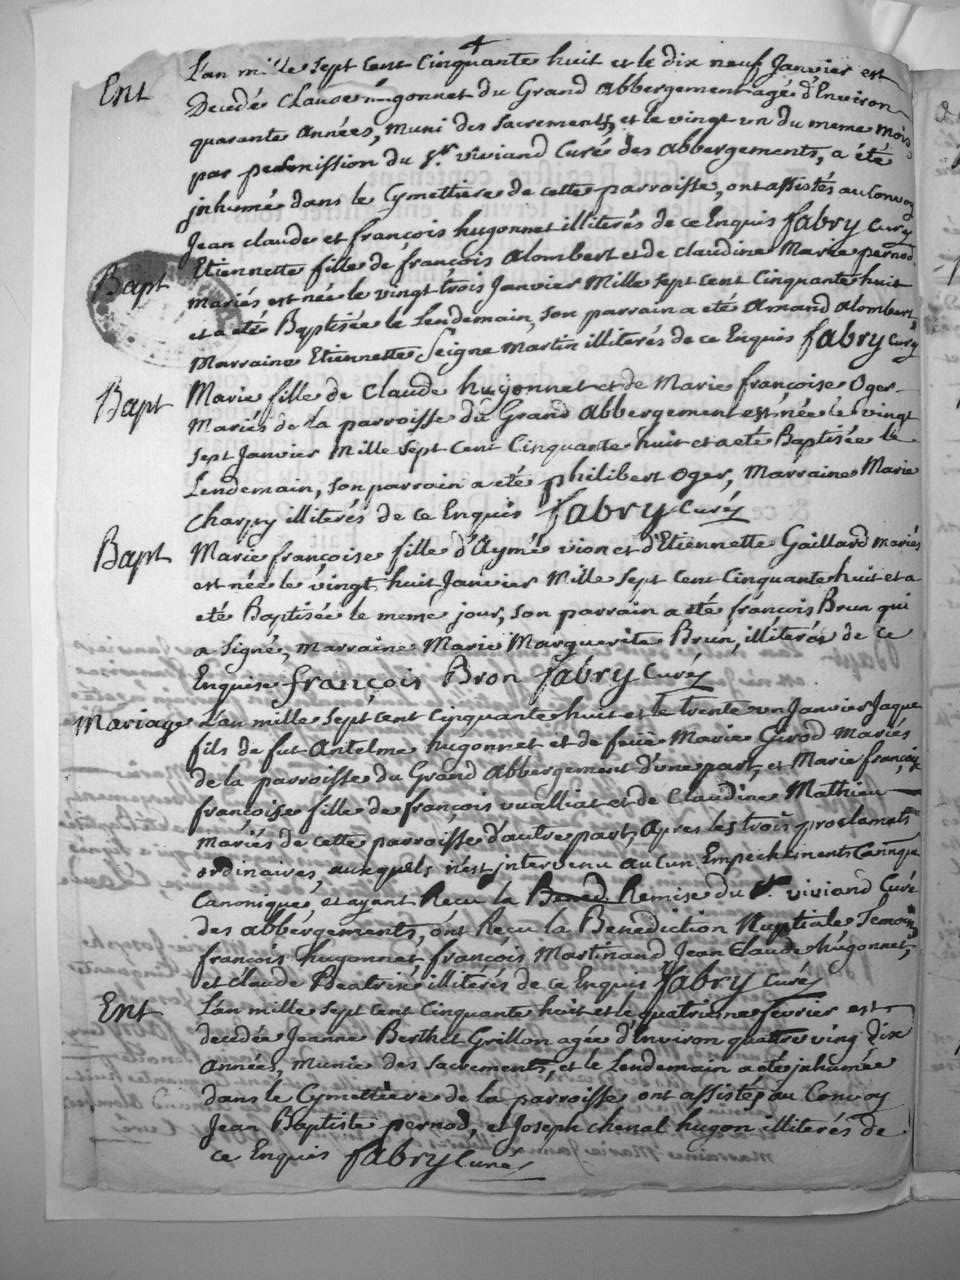 Ent
L'an mille sept Cent Cinquante huit et le dix neuf Janvier est
Decedé Claude hugonnet du Grand Abbergement agé d'Environ
quarante Années, muni des Sacrements, et le vingt un du meme mois
par permission du Sr. Viviand Curé des abbergements, a été
jnhumé dans le Cymettiere de cette parroisse, ont assistés au Convoy
Jean claude et françois hugonnet illiterés de ce Enquis fabry Curé
Bapt
Etiennette fille de françois Alombert et de claudine Marie pernod
mariés est née le vingt trois Janvier Mille sept cent Cinquante huit
et a eté Baptisée le Lendemain, son parrain a eté Amand Alombert
Marraine Etiennette Seigne Martin illiterés de ce Enquis fabry Curé
Bapt
Marie fille de Claude hugonnet et de Marie françoise Oger
Mariés de la parroisse du Grand Abbergement est née le vingt
sept Janvier Mille sept Cent Cinquante huit et a eté Baptisée le
Lendemain, son parrain a eté philibert Oger, Marraine Marie
Charpy illiterés de ce Enquis fabry Curé
Bapt
Marie françoise fille d'Aymé vion et d'Etiennette Gaillard mariés
est née le vingt huit Janvier Mille sept Cent Cinquante huit et a
eté Baptisée le meme jour, son parrain a eté françois Brun qui
a signé, marraine Marie Marguerite Brun, illiterés de ce
Enquise françois Bron fabry Curé
Mariage
L'an mille sept cent cinquante huit et le trente un Janvier Jaque
fils de fut Antelme hugonnet et de feüe Marie Girod Mariés
de la parroisse du Grand Abbergement d'une part, et Marie françoise
françoise fille de françois vualliat et de Claudine Mathieu
mariés de cette parroisse d'autre part, Apres les trois proclamats
ordinaires, auxquels n'est jntervenu aucun Empechements Canoniqu
Canonique, et ayant Recu la Bened. Remise du Sr. viviand Curé
des abbergements, ont Reçu la Benediction Nuptiale Temoins
françois hugonnet françois Martinand Jean Claude hugonnet,
et Claude Beatrix illiterés de ce Enquis fabry Curé
Ent
L'an mille sept Cent Cinquante huit et le quatrieme fevrier est
decedée Jeanne Berthet Grillon agée d'Environ quatre ving dix
Années, munie des Sacrements, et le Lendemain a eté jnhumée
dans le Cymettiere de la parroisse ont assistés au Convoy
Jean Baptiste pernod, et Joseph chenal hugon illiterés de
ce Enquis fabry Curé